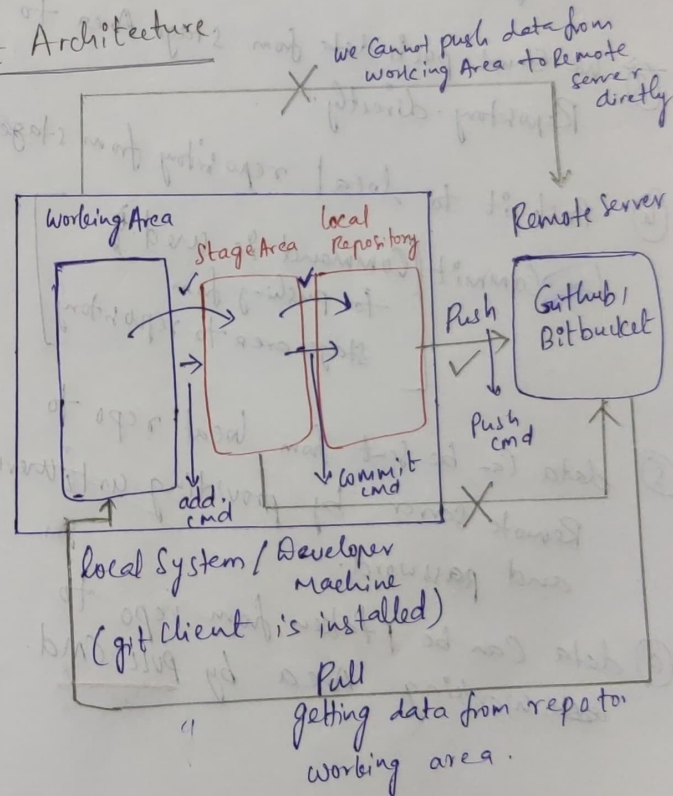 Architecture
we Cannot push data from
working Area to Remote
server
diretly
working Area
Stage Area
local
Repository
Remote Server
Github/
Bitbucket
Push
Push
cmd
add.
cmd
Commit
cmd
local System / Developer
Machine
(git client is installed)
Pull
getting data from repo to
working area.